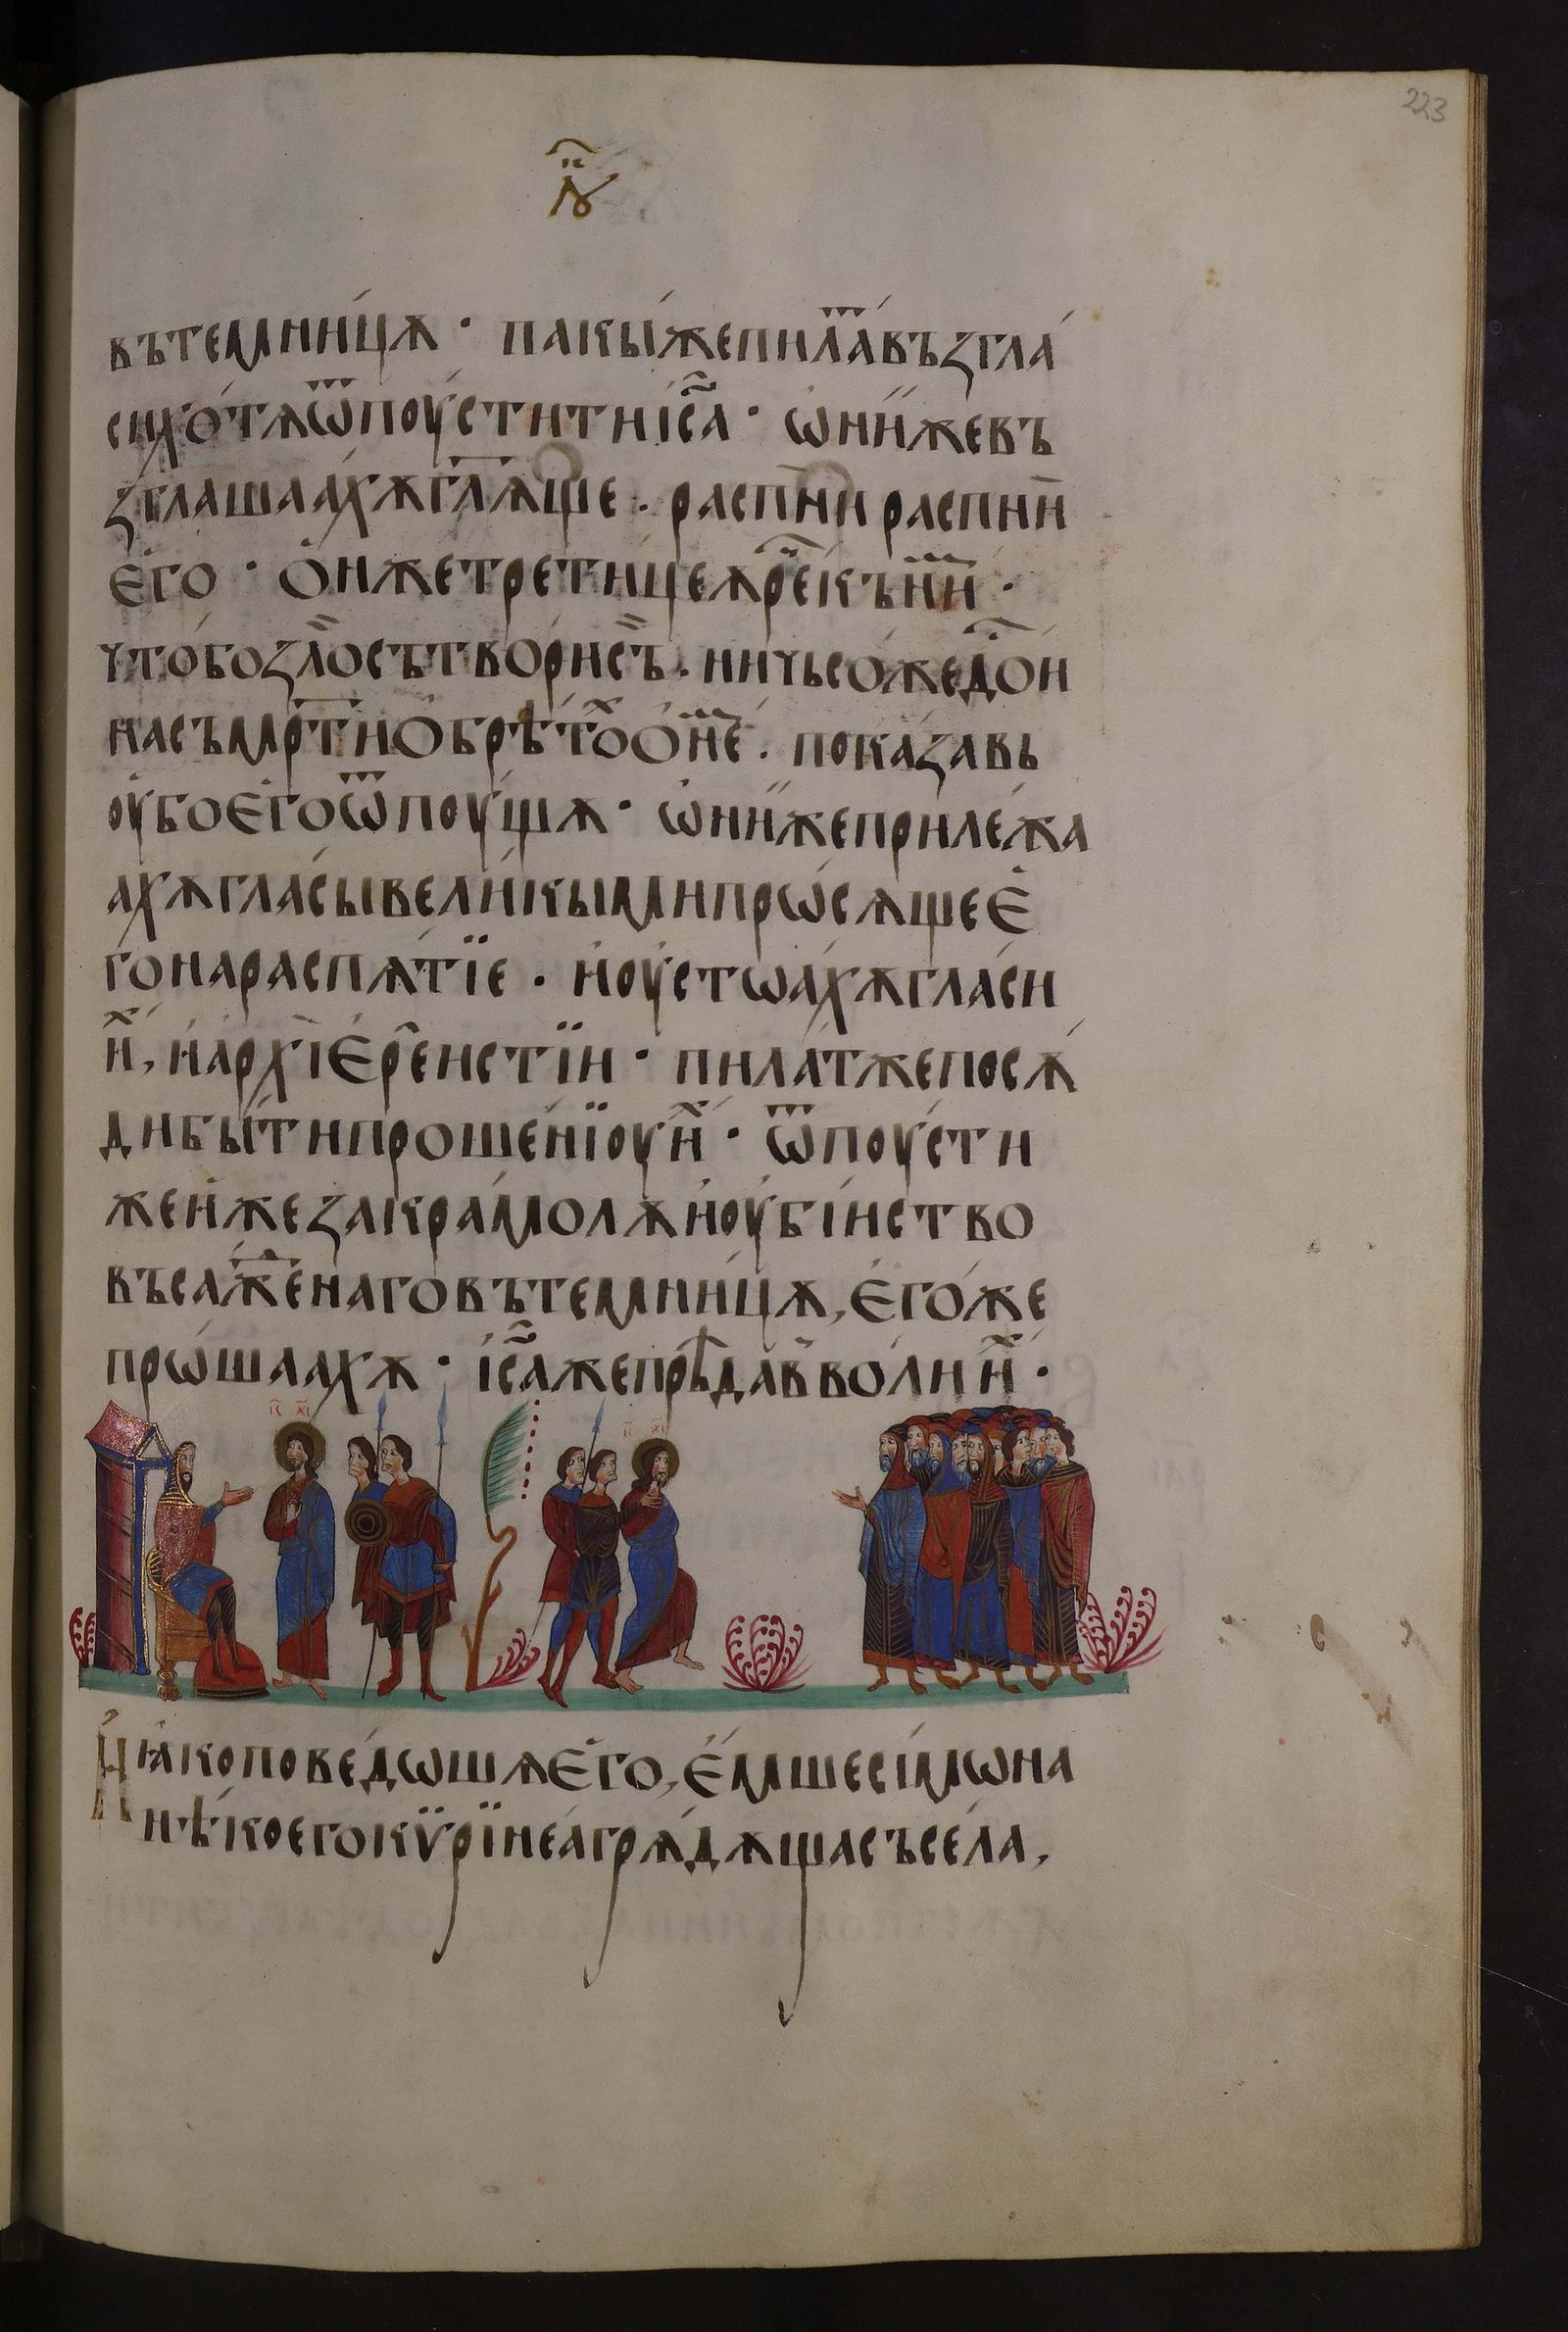 223
л҃ꙋ
вътемни́цѫ · пакы́жепилⷶа́възгла́
сихо́тѧѿпоу́стити і҆с҃а · ѡ҆ни́жевъ
зглашаахѫгл҃ѫще · распни распни
е҆го · ѻ҆нжетретицеѧрⷱ҇екъни́мъ ·
что́бозло̀сътво́рисъ · ничьсо́жедⷭ҇ои
насъмрт҃иѻ҆брѣтоⷯ ѻ҆не́мь · пока́завь
оу҆боего̀ѿпоущѫ · ѡ҆ни́жеприле́жа
ахѫгла́сывели́кыми прѡ́сѧщее҆
гонараспѧ́тїе · и҆оу́стѡа́хѫгла́си
иⷯ, и҆архїе҆ре́истїи · пила́тжепосѫ́
дибы́типроше́нїоуиⷯ · ѿпоу́сти
жеи́жезакрамолѫи҆оу҆бі́иство
въса́женаговътемни́цѫ, е҆го́же
прѡшаахѫ · і҆с҃ажепрѣда́вволи иⷯ ·
і҃с х҃с
і҃с х҃с
И҆ꙗ҆коповедѡ́шѧе҆го, е҆́мшесі́мѡна
нѣ́коегокѷрїне́агрѧдѫщасъсе́ла,